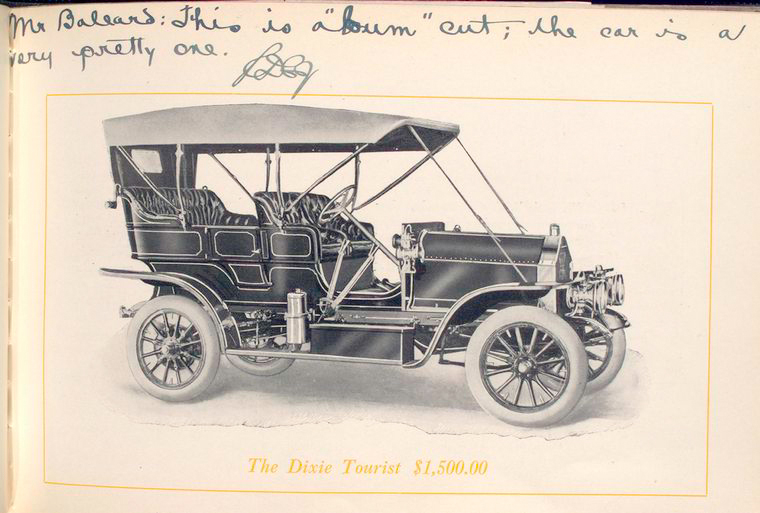 Mr Baleard: This is a "bum" cut; the car is a
very pretty one.
The Dixie Tourist $1,500.00